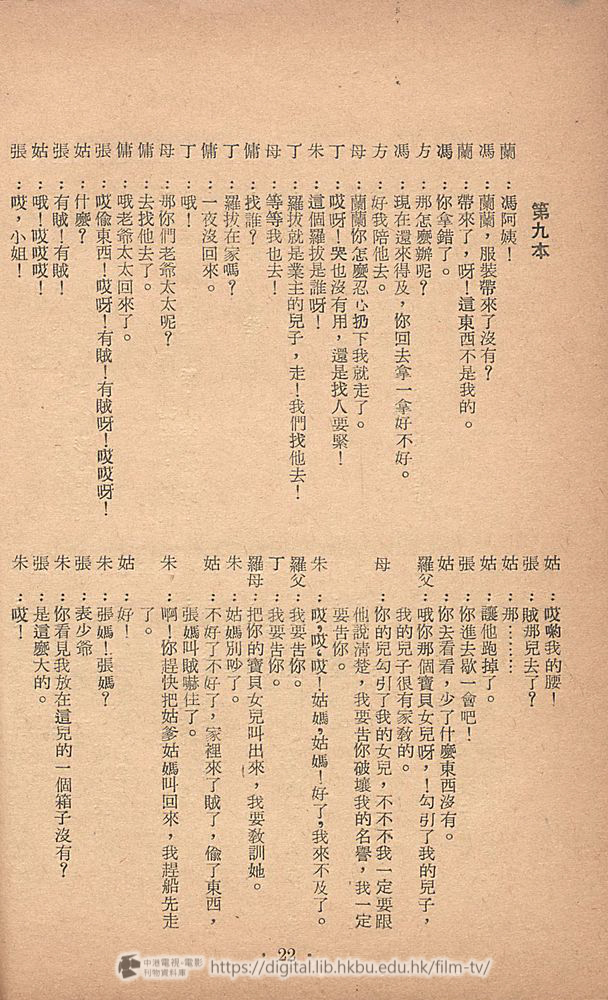 第九本
蘭：馮阿姨！
馮：蘭蘭，服裝帶來了沒有？
蘭：帶來了，呀！這東西不是我的。
馮：你拿錯了。
方：那怎麼辦呢？
馮：現在還來得及，你回去拿一拿好不好。
方：好我陪他去。
母：蘭蘭你怎麼忍心扔下我就走了。
丁：哎呀！哭也沒有用，還是找人要緊！
朱：這個羅拔是誰呀！
丁：羅拔就是業主的兒子，走！我們找他去！
母：等等我也去！
傭：找誰？
丁：羅拔在家嗎？
傭：一夜沒回來。
丁：哦！
母：那你們老爺太太呢？
傭：去找他去了。
傭：哦老爺太太回來了。
張：哎偷東西！哎呀！有賊！有賊呀！哎哎呀！
姑：什麼？
張：有賊！有賊！
姑：哦！哎哎哎！
張：哎，小姐！
姑：哎喲我的腰！
張：賊那兒去了？
姑：那………
姑：讓他跑掉了。
張：你進去歇一會吧！
姑：你去看看，少了什麼東西沒有。
羅父：哦你那個寶貝女兒呀，！勾引了我的兒子，
我的兒子很有家教的。
母：你的兒勾引了我的女兒，不不不我一定要跟
他說清楚，我要告你破壞我的名譽，我一定
要告你。
朱：哎，哎，哎！姑媽，姑媽！好了，我來不及了。
羅父：我要告你。
丁：我要告你。
羅母：把你的寶貝女兒叫出來，我要教訓她。
朱：姑媽別吵了。
姑：不好了不好了，家裡來了賊了，偷了東西，
張媽叫賊嚇住了。
朱：啊！你趕快把姑爹姑媽叫回來，我趕船先走
了。
姑：好！
朱：張媽！張媽？
張：表少爺
朱：你看見我放在這兒的一個箱子沒有？
張：是這麼大的。
朱：哎！
·22·
中港電視·電影
刊物資料庫
https://digital.lib.hkbu.edu.hk/film-tv/